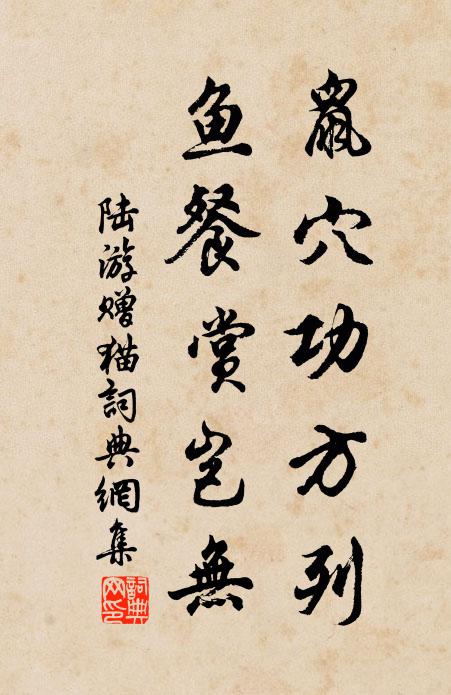 鼠穴功方列
鱼餐赏岂無
陆游赠猫詞典網集
詞典网印